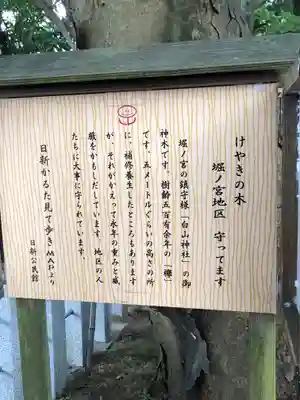 けやきの木
堀ノ宮地区 守ってます
堀ノ宮の鎮守様「白山神社」の御
神木です。樹齢五百有余年の「欅」
です。五メートルぐらいの高さの所
に、補修養生したところもあります
が、それがかえって永年の重みと威
厳をかもしだしています。地区の人
たちに大事に守られています。
日新かるた見て歩きMAPより
日新公民館